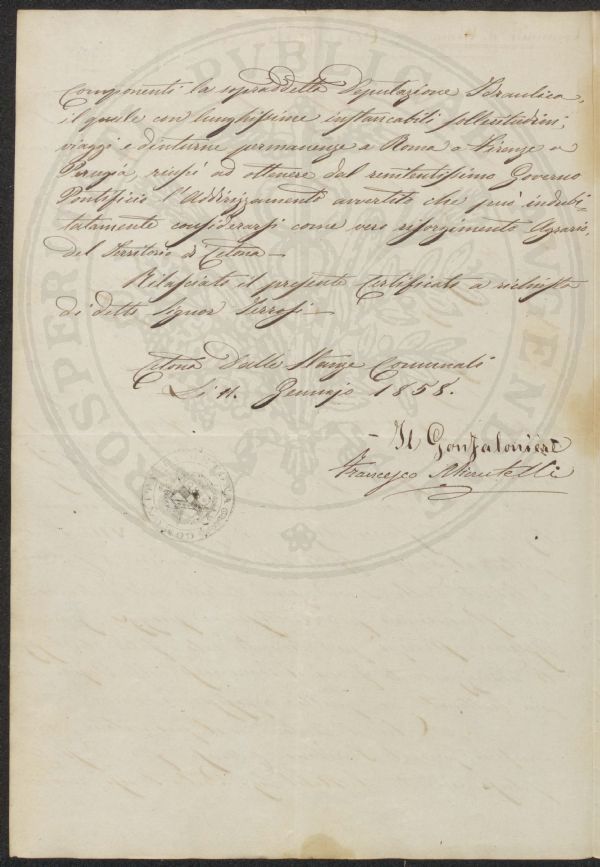 componenti la sopraddetta Deputazione Idraulica,
il quale con lunghissime instancabili sollecitazioni,
viaggi e diuturne permanenze a Roma a Firenze a
Perugia, riuscì ad ottenere dal renitentissimo Governo
Pontificio l'Addirizzamento avvertito che può indubi=
tatamente considerarsi come vero risorgimento Agrario,
del Territorio di Cetona —
Rilasciato il presente Certificato a richiesta
di detto Signor Terrosi —
Cetona Dalle Stanze Comunali
Li 11. Gennajo 1858.
— Il Gonfaloniere
Francesco